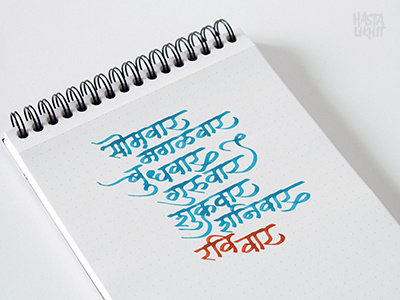 सोमवार
मंगळवार
बुधवार
गुरुवार
शुक्रवार
शनिवार
रविवार
HASTA